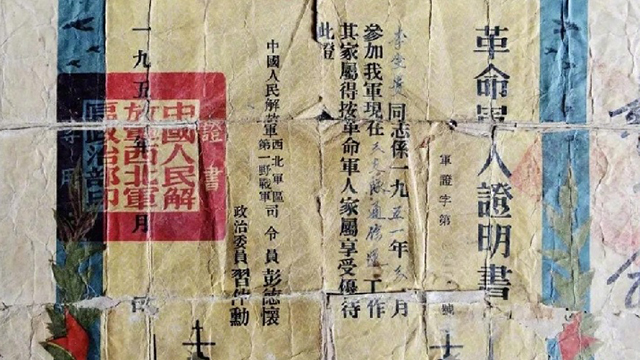 革命軍人證明書
軍證字第 號
李 同志係一九五一年 月
參加我軍現在 工作
其家屬得按革命軍人家屬享受優待
此證
中國人民解放軍西北軍區第一野戰軍司令員彭德懷
政治委員習仲勳
證書
一九五 年 月
中國人民解
放軍西北軍
區政治部印